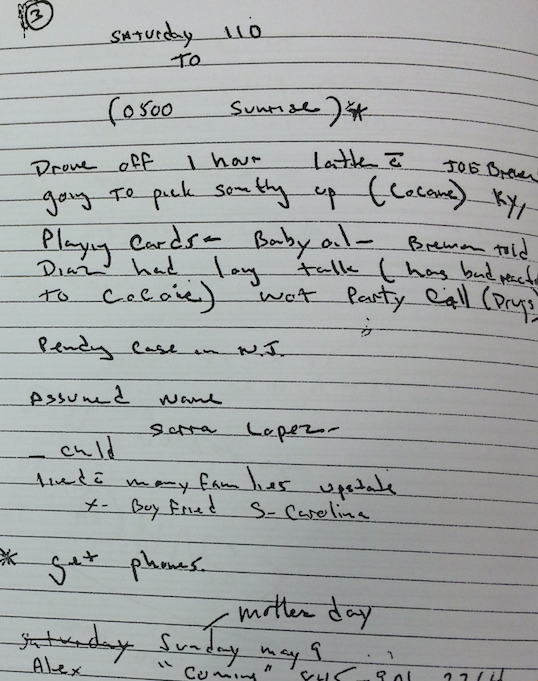 3
Saturday 110
TO
(0500 Sunrise)*
Drove off 1 hour latter c̄ JOE Brewer
going To pick somthy up (Cocaine) Ky,
Playing Cards - Baby oil - Brennan told
Diaz had long talk (has bad react
to Cocaine) wot Party Call (Drugs)
Pendy Case in N.J.
Assumed Name
Sarra Lopez -
- child
lived c̄ many families upstate
x- Boy Fried S- Carolina
* get phones.
mother day
Saturday Sunday may 9
Alex "Coming"